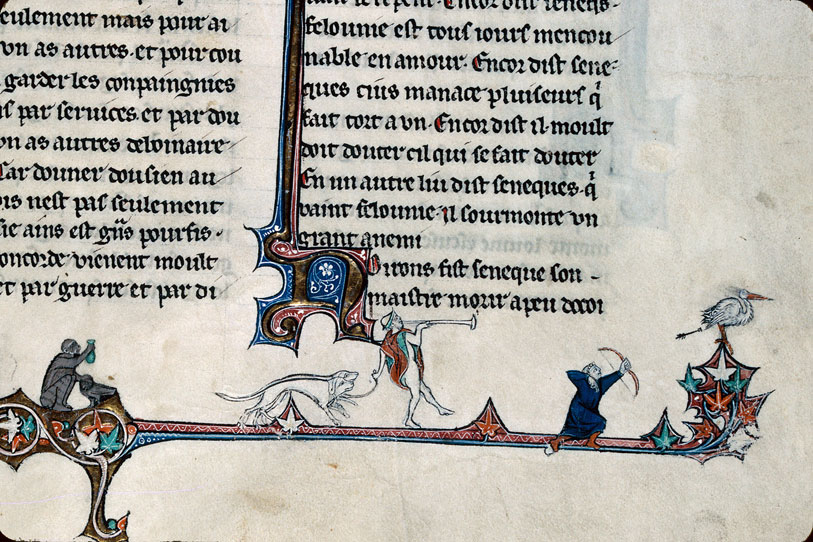 seulement mais pour ai
un as autres. et pour cou
garder les conpaingnies
is par seruices. et par dou
un as autres debonaire
Car donner don sien au
ois nest pas seulement
sie ains est gñs pourfis.
oncorde uienent moult
et par guerre et par di
Encor dist seneqs.
felounie est tous iours mencou
nable en amour. Encor dist sene
ques cius manace pluiseurs q̃
fait tort a vn. Encor dist il. moult
doit douter cil qui se fait douter
En un autre liu dist seneques. q̃
vaint felounie. il sourmonte vn
grant anemi
Noirons fist seneque son
maistre morir a peu docoi